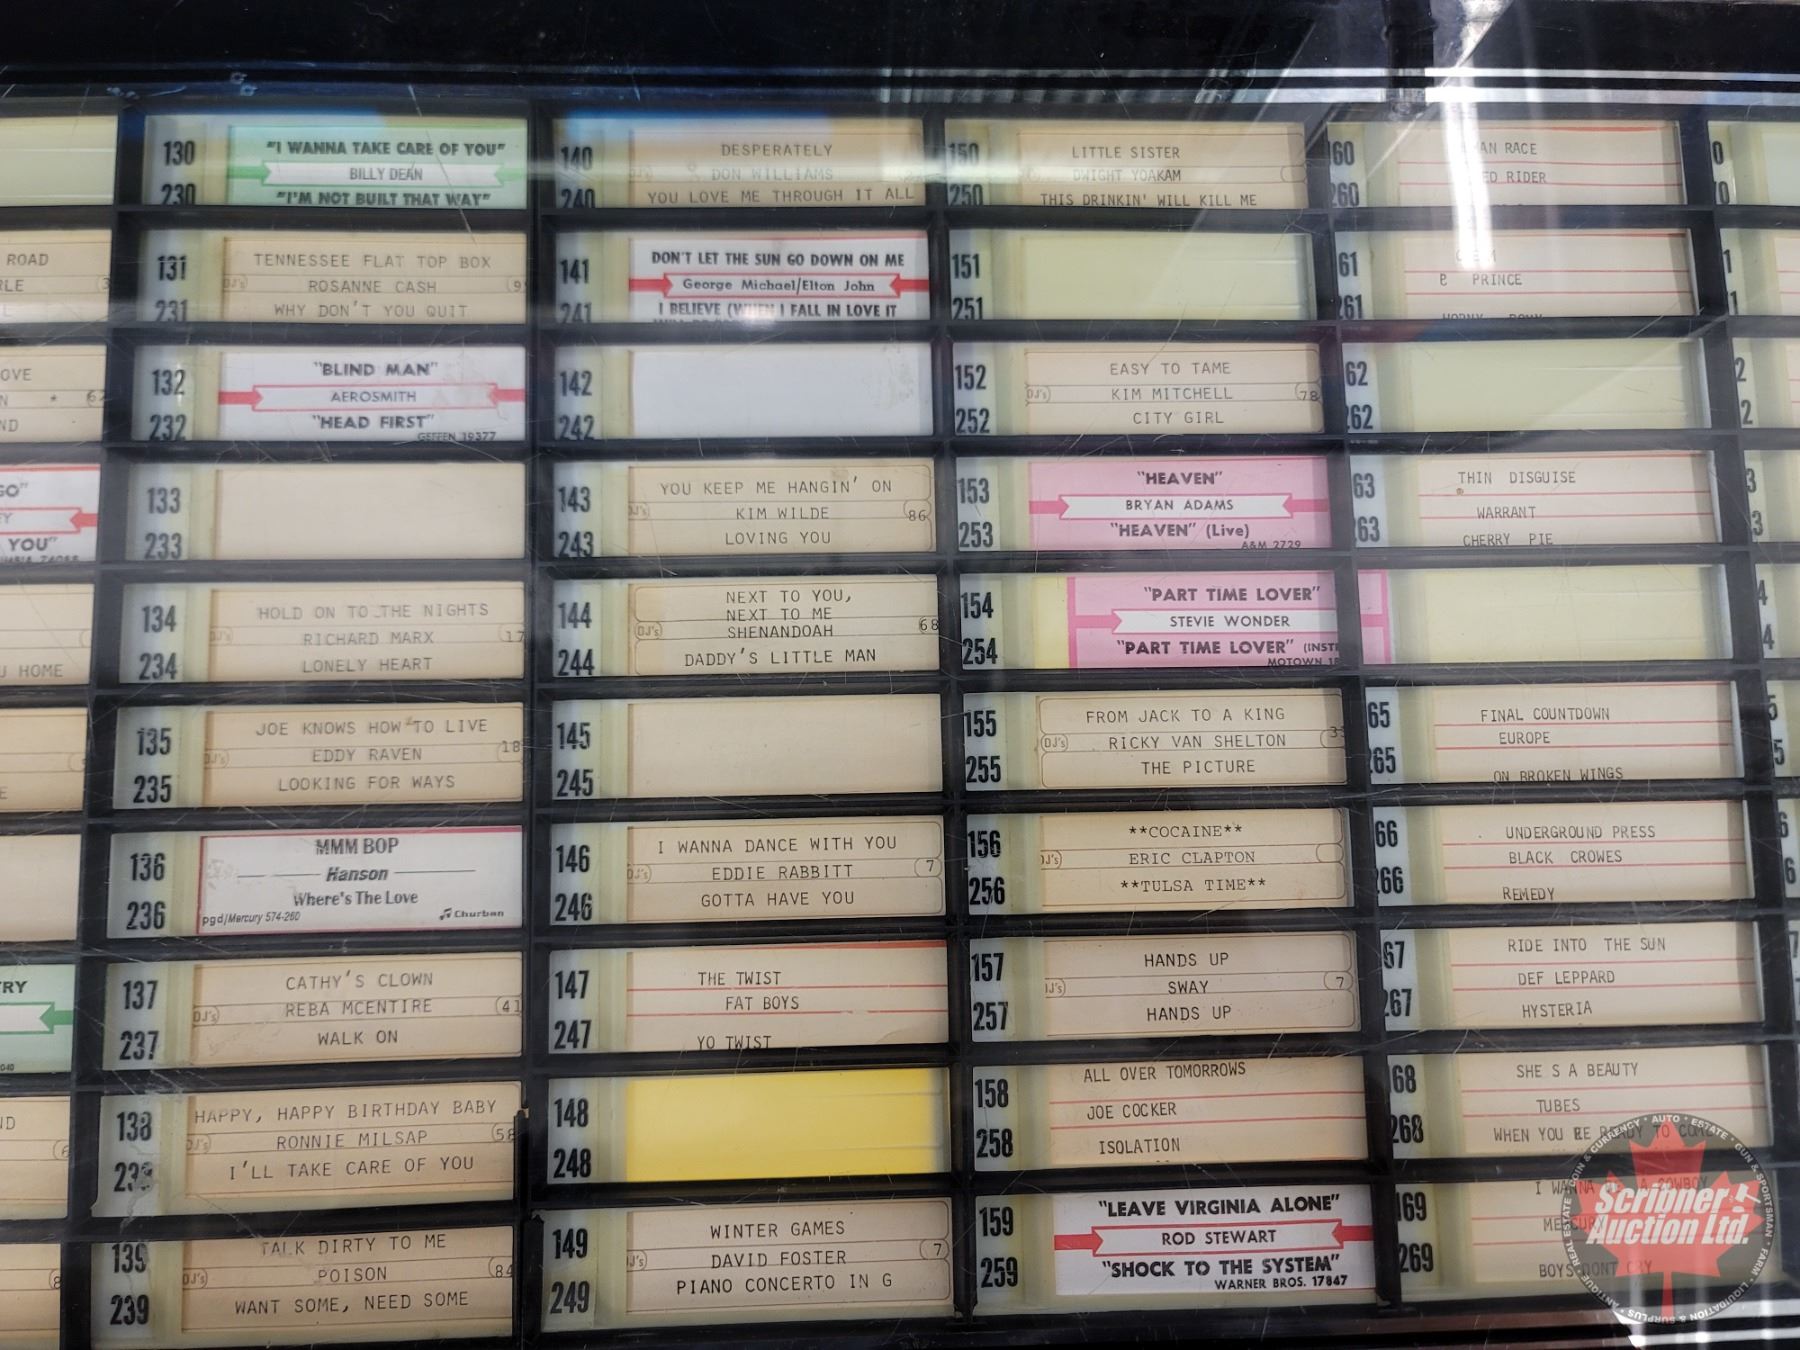 ROAD
RLE
OVE
N *
ND
GO"
EY
YOU"
U HOME
E
TRY
ND
130
230
"I WANNA TAKE CARE OF YOU"
BILLY DEAN
"I'M NOT BUILT THAT WAY"
131
231
TENNESSEE FLAT TOP BOX
DJ's ROSANNE CASH 9
WHY DON'T YOU QUIT
132
232
"BLIND MAN"
AEROSMITH
"HEAD FIRST"
GEFFEN 19377
133
233
134
234
HOLD ON TO THE NIGHTS
DJ's RICHARD MARX 17
LONELY HEART
135
235
JOE KNOWS HOW TO LIVE
DJ's EDDY RAVEN 18
LOOKING FOR WAYS
136
236
MMM BOP
Hanson
Where's The Love
pgd/Mercury 574-260 Churban
137
237
CATHY'S CLOWN
DJ's REBA MCENTIRE 41
WALK ON
138
238
HAPPY, HAPPY BIRTHDAY BABY
DJ's RONNIE MILSAP 58
I'LL TAKE CARE OF YOU
139
239
TALK DIRTY TO ME
DJ's POISON 84
WANT SOME, NEED SOME
140
240
DESPERATELY
DON WILLIAMS
YOU LOVE ME THROUGH IT ALL
141
241
DON'T LET THE SUN GO DOWN ON ME
George Michael/Elton John
I BELIEVE (WHEN I FALL IN LOVE IT
142
242
143
243
YOU KEEP ME HANGIN' ON
DJ's KIM WILDE 86
LOVING YOU
144
244
NEXT TO YOU,
NEXT TO ME
DJ's SHENANDOAH 68
DADDY'S LITTLE MAN
145
245
146
246
I WANNA DANCE WITH YOU
DJ's EDDIE RABBITT 7
GOTTA HAVE YOU
147
247
THE TWIST
FAT BOYS
YO TWIST
148
248
149
249
WINTER GAMES
DJ's DAVID FOSTER 7
PIANO CONCERTO IN G
150
250
LITTLE SISTER
DWIGHT YOAKAM
THIS DRINKIN' WILL KILL ME
151
251
152
252
EASY TO TAME
DJ's KIM MITCHELL 78
CITY GIRL
153
253
"HEAVEN"
BRYAN ADAMS
"HEAVEN" (Live)
A&M 2729
154
254
"PART TIME LOVER"
STEVIE WONDER
"PART TIME LOVER" (INST
MOTOWN 18
155
255
FROM JACK TO A KING
DJ's RICKY VAN SHELTON 33
THE PICTURE
156
256
**COCAINE**
DJ's ERIC CLAPTON
**TULSA TIME**
157
257
HANDS UP
DJ's SWAY 7
HANDS UP
158
258
ALL OVER TOMORROWS
JOE COCKER
ISOLATION
159
259
"LEAVE VIRGINIA ALONE"
ROD STEWART
"SHOCK TO THE SYSTEM"
WARNER BROS. 17847
60
260
AN RACE
ED RIDER
61
261
PRINCE
HORNY PONY
62
262
63
263
THIN DISGUISE
WARRANT
CHERRY PIE
65
265
FINAL COUNTDOWN
EUROPE
ON BROKEN WINGS
66
266
UNDERGROUND PRESS
BLACK CROWES
REMEDY
67
267
RIDE INTO THE SUN
DEF LEPPARD
HYSTERIA
68
268
SHE S A BEAUTY
TUBES
WHEN YOU RE READY TO COME
169
269
I WANNA A COWBOY
MERCURY
BOYS DONT CRY
Scribner
Auction Ltd.
COIN & CURRENCY • AUTO • ESTATE • GUN & SPORTSMAN • FARM • LIQUIDATION & SURPLUS • ANTIQUE • REAL ESTATE